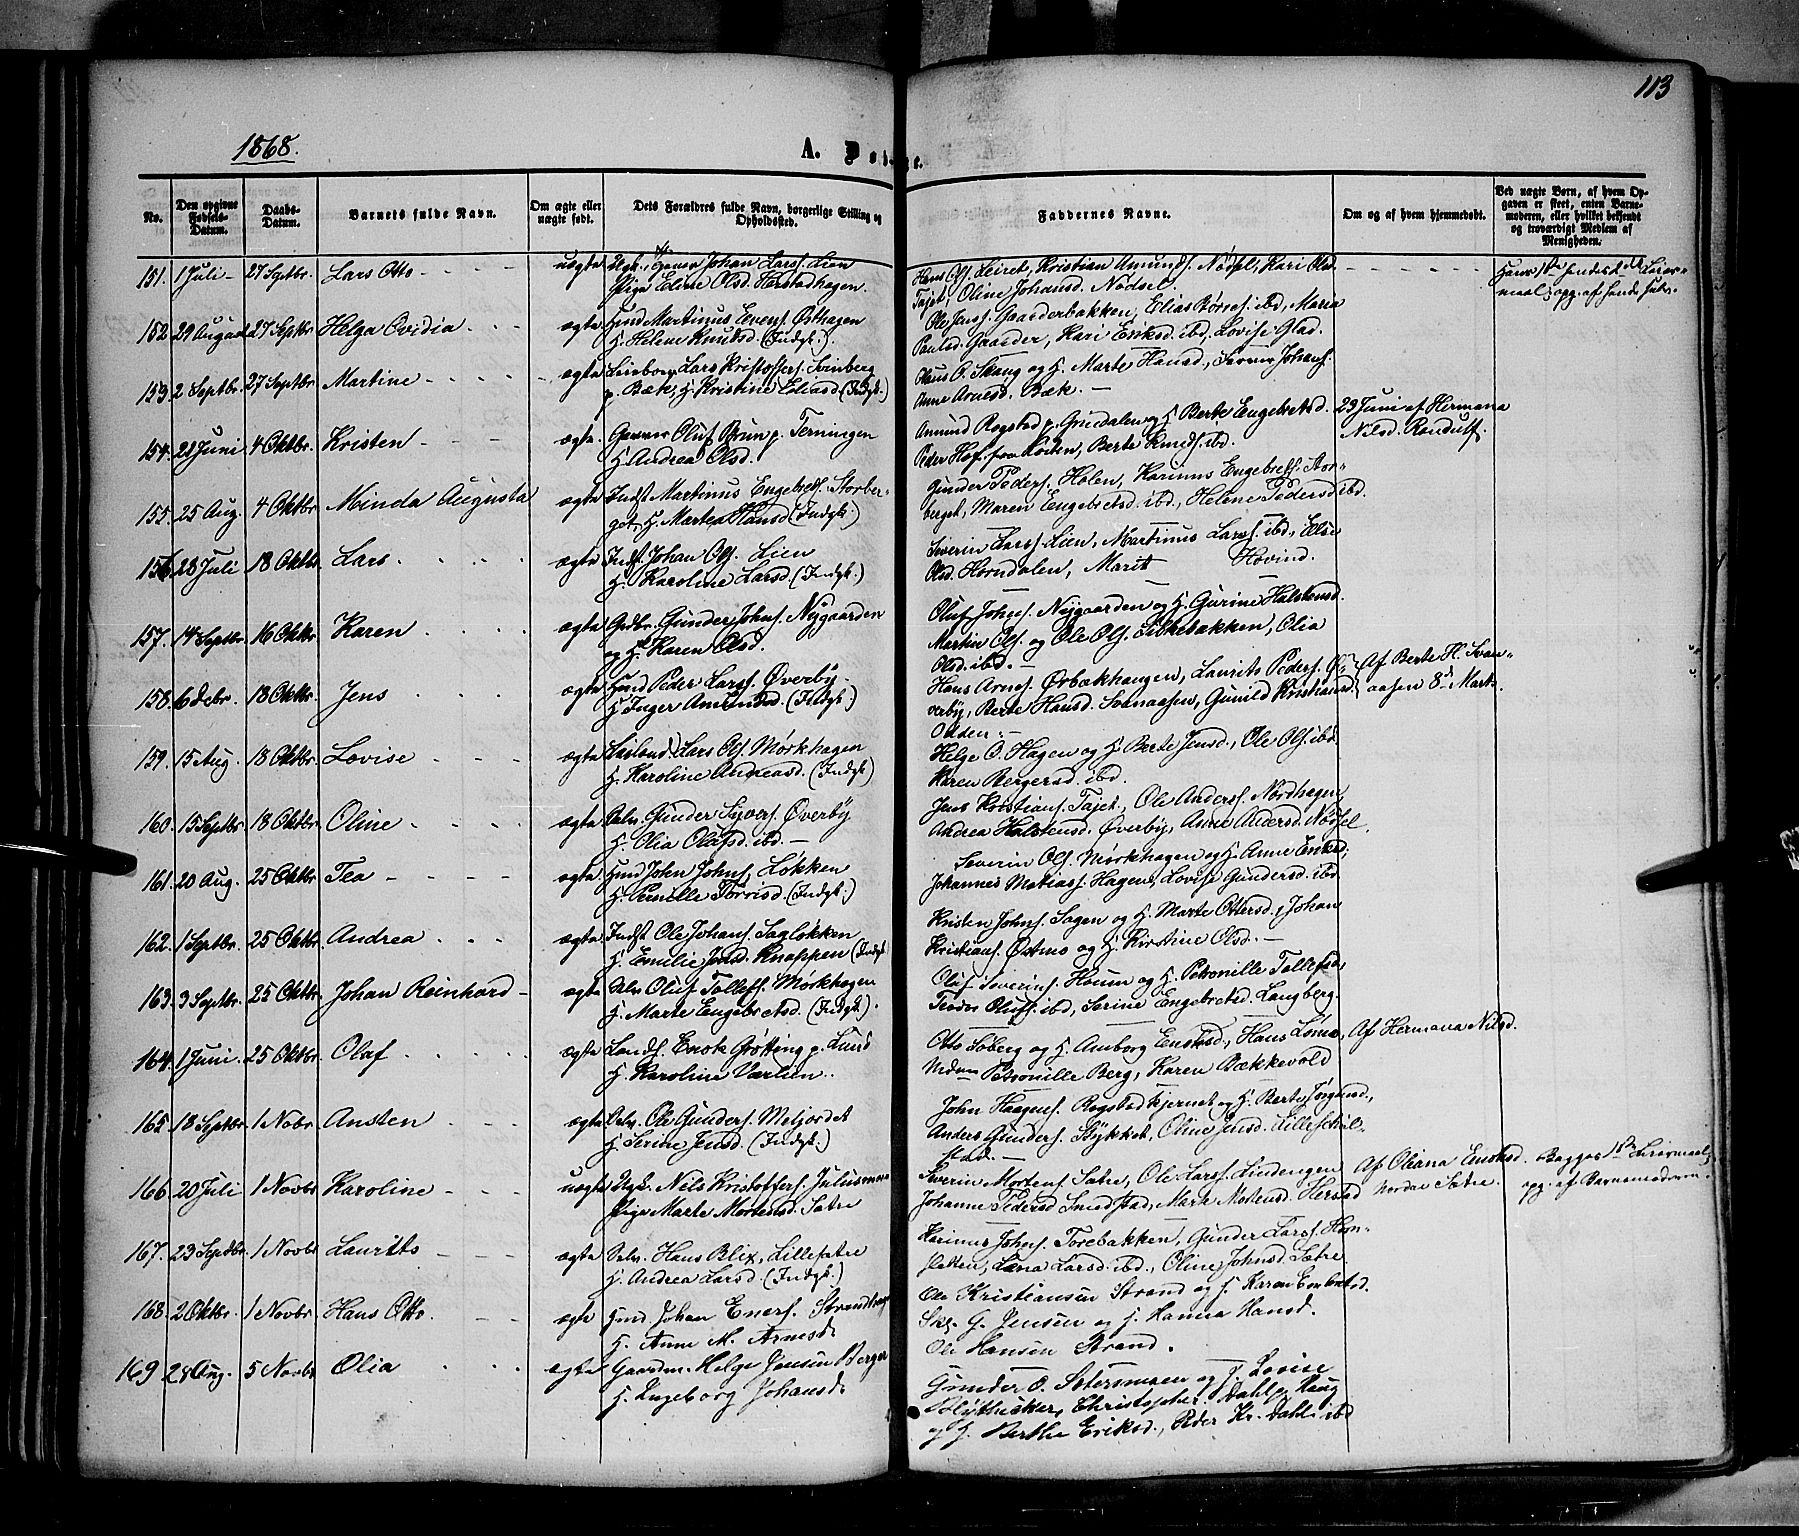 113
1868.
A. Døbte.
No.
Den opgivne Fødsels-Datum.
Daabs-Datum.
Barnets fulde Navn.
Om ægte eller uægte født.
Dets Forældres fulde Navn, borgerlige Stilling og Opholdssted.
Faddernes Navne.
Om og af hvem hjemmedøbt.
Ved uægte Børn, af hvem Opgaven er skeet, enten Barnemoderen, eller hvilket bekjendt og troværdigt Medlem af Menigheden.
151. 1 Juli 27 Septbr. Lars Otto uægte Johan Larss. Lien
Pige Eline Olsd. Herstadhagen.
Hans Ols. Leiret, Kristian Amunds. Nødsel, Kari Olsd.
Tajet, Oline Johansd. Nødsel.
152. 29 August 27 Septbr. Helga Ovidia ægte Hmd Martinus Evens. Østhagen
H. Helene Knudsd. (Indgk.)
Ole Jenss. Gaarderbakken, Elias Børres. ibd, Maria
Paulsd. Gaarder, Kari Eriksd. ibd, Lovise Glad.
153. 2 Septbr. 27 Septbr. Martine ægte Lars Kristoffers. Svenberg
p. Bæk, H. Kristine Eliasd (Indgk.)
Olaus O. Skaug og H. Marte Hansd., Johans.
Anne Arnesd. Bæk.
154. 28 Juni 4 Oktbr. Kristen ægte Oluf Brun p. Terningen
H. Andrea Olsd.
Amund Rogstad p. Grindalen og H. Berte Engebretsd.
Peder Hof fra Løiten, Berte Knuds. ibd.
29 Juni af Hermana
Nilsd. Rondulf.
155. 25 Aug. 4 Oktbr. Minda Augusta ægte Indst Martinus Engebrets. Storber-
get, H. Martea Hansd (Indgk.)
Gunder Peders. Holen, Karinus Engebrets. Stor-
berget, Maren Engebretsd. ibd., Helene Pedersd ibd.
156. 28 Juli 18 Oktbr. Lars ægte Indst Johan Ols. Lien
H. Karoline Larsd. (Indgk.)
Severin Larss. Lien, Martinus Larss. ibd., Else
Olsd. Horndalen, Marit Hovind.
157. 14 Septbr. 16 Oktbr. Karen ægte Gdbr. Gunder Johns. Nygaarden
og H. Karen Olsd.
Oluf Johns. Nygaarden og H. Gurine Halstensd.
Martin Ols. og Ole Ols. Silkebakken, Olia
Olsd. ibd.
158. 6 Febr. 18 Oktbr. Jens ægte Hmd Peder Larss. Øverby.
H. Inger Amundsd. (Indgk.)
Hans Arnes. Ørbækhaugen, Laurits Peders. Ø-
verby, Berte Hansd. Svenaasen, Gunild Kristiansd.
Odden.
Af Berte H. Svan-
aasen 8de Mart.
159. 15 Aug. 18 Oktbr. Lovise ægte Lars Ols. Mørkhagen
H. Karoline Andreasd. (Indgk)
Helge O. Hagen og H. Berte Jensd., Ole Ols. ibd.
Karen Bergersd. ibd.
160. 15 Septbr. 18 Oktbr. Oline ægte Gunder Syvers. Øverby
H. Olia Olafsd. ibd.
Jens Kristians. Tajet, Ole Anders. Nordhagen,
Andrea Halstensd. Øverby, Anne Andersd. Nødsel.
161. 20 Aug. 25 Oktbr. Tea ægte Hmd John Johns. Løkken
H. Pernille Torrisd. (Indgk.)
Severin Ols. Mørkhagen og H. Anne Eriksd.,
Johannes Matiass. Hagen, Lovise Gundersd. ibd
162. 1 Septbr. 25 Oktbr. Andrea ægte Indst Ole Johans. Sagløkken
H. Emilie Jensd. Knappen (Indgk.
Kristen Johns. Sagen og H. Marte Ottersd., Johan
Kristians. Østmo og H. Kirstine Olsd.
163. 3 Septbr. 25 Oktbr. Johan Reinhard ægte Selv. Oluf Tollefs. Mørkhagen
H. Marte Engebretsd. (Indgk.)
Olaf Severins. Houm og H. Petronille Tollefsd.,
Teodor Olufs. ibd, Serine Engebretsd. Langberg.
164. 1 Juni. 25 Oktbr. Olaf ægte Lands. Enok Grøtting p. Lund
H. Karoline Værlien.
Otto Soberg og H. Amborg Enoksd., Hans Lomo,
Petronille Berg, Karen Bækkevold
Af Hermana Nilsd.
165. 18 Septbr. 1 Nobr. Ansten ægte Selv. Ole Gunders. Meljordet
H. Serine Jensd. (Indgk.)
John Haagens. Rogstadkjernet og H. Berte Jørgensd.,
Anders Gunders. Bykket, Oline Jensd. Lilleskjæl-
stad.
166. 20 Juli 1 Novbr. Karoline uægte Ungk. Nils Kristoffers. Juliusmoen
Pige Marte Mortensd. Sætre
Severin Mortens. Sætre, Ole Larss. Lindengen
Johanne Pedersd Smedstad, Marte Mortensd. Herstad
Af Oliana Enoksd.
nordre Sætre.
Begges 1ste Leiermaal,
opg. af Barnemoderen.
167. 23 Septbr. 1 Novbr Lauritts ægte Selv. Hans Blix, Lillesætre
H. Andrea Larsd. (Indgk.)
Karinus Johns. Torebakken, Gunder Larss. Horn-
sletten, Lena Larsd. ibd., Oline Johnsd. Sætre
168. 2 Oktbr. 1 Novbr. Hans Otto. ægte Hmd Johan Eners. Strandhage
H. Anne M. Arnesd.
Ole Kristiansen Strand og H. Karen Embretsd.
G. Jensen og H. Hanna Hansd.
Ole Hansen Strand.
169 28 Aug. 5 Novbr Olia ægte Gaardm. Helge Jensen Berger
H. Ingeborg Johansd.
Gunder O. Sætersmoen og H. Lovise
Christopher Dahl p. Haug
og H. Berthe Eriksd., Peder Kr. Dahl ibd